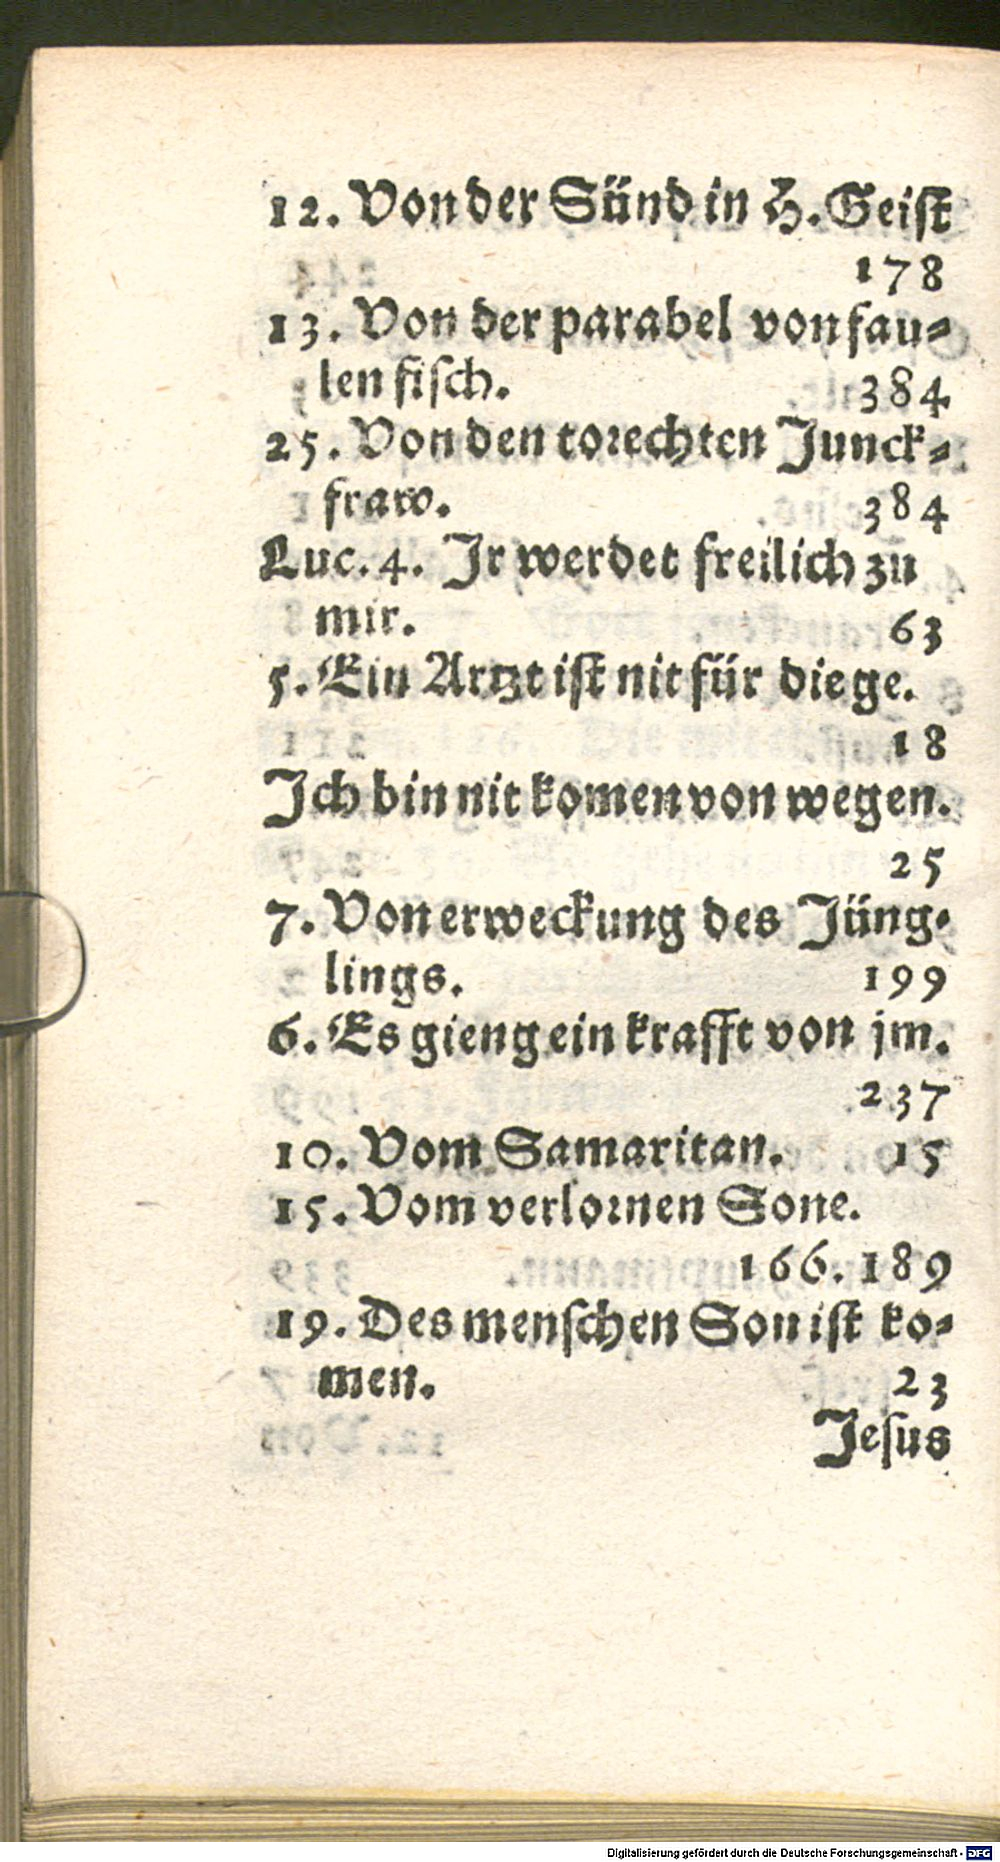 12. Von der Sünd in H. Geist
178
13. Von der parabel von fau-
len fisch. 384
25. Von den torechten Junck-
fraw. 384
Luc. 4. Ir werdet freilich zu
mir. 63
5. Ein Artzt ist nit für die ge.
18
Ich bin nit komen von wegen.
25
7. Von erweckung des Jüng-
lings. 199
6. Es gieng ein krafft von jm.
237
10. Vom Samaritan. 15
15. Vom verlornen Sone.
166. 189
19. Des menschen Son ist ko-
men. 23
Jesus
Digitalisierung gefördert durch die Deutsche Forschungsgemeinschaft - DFG